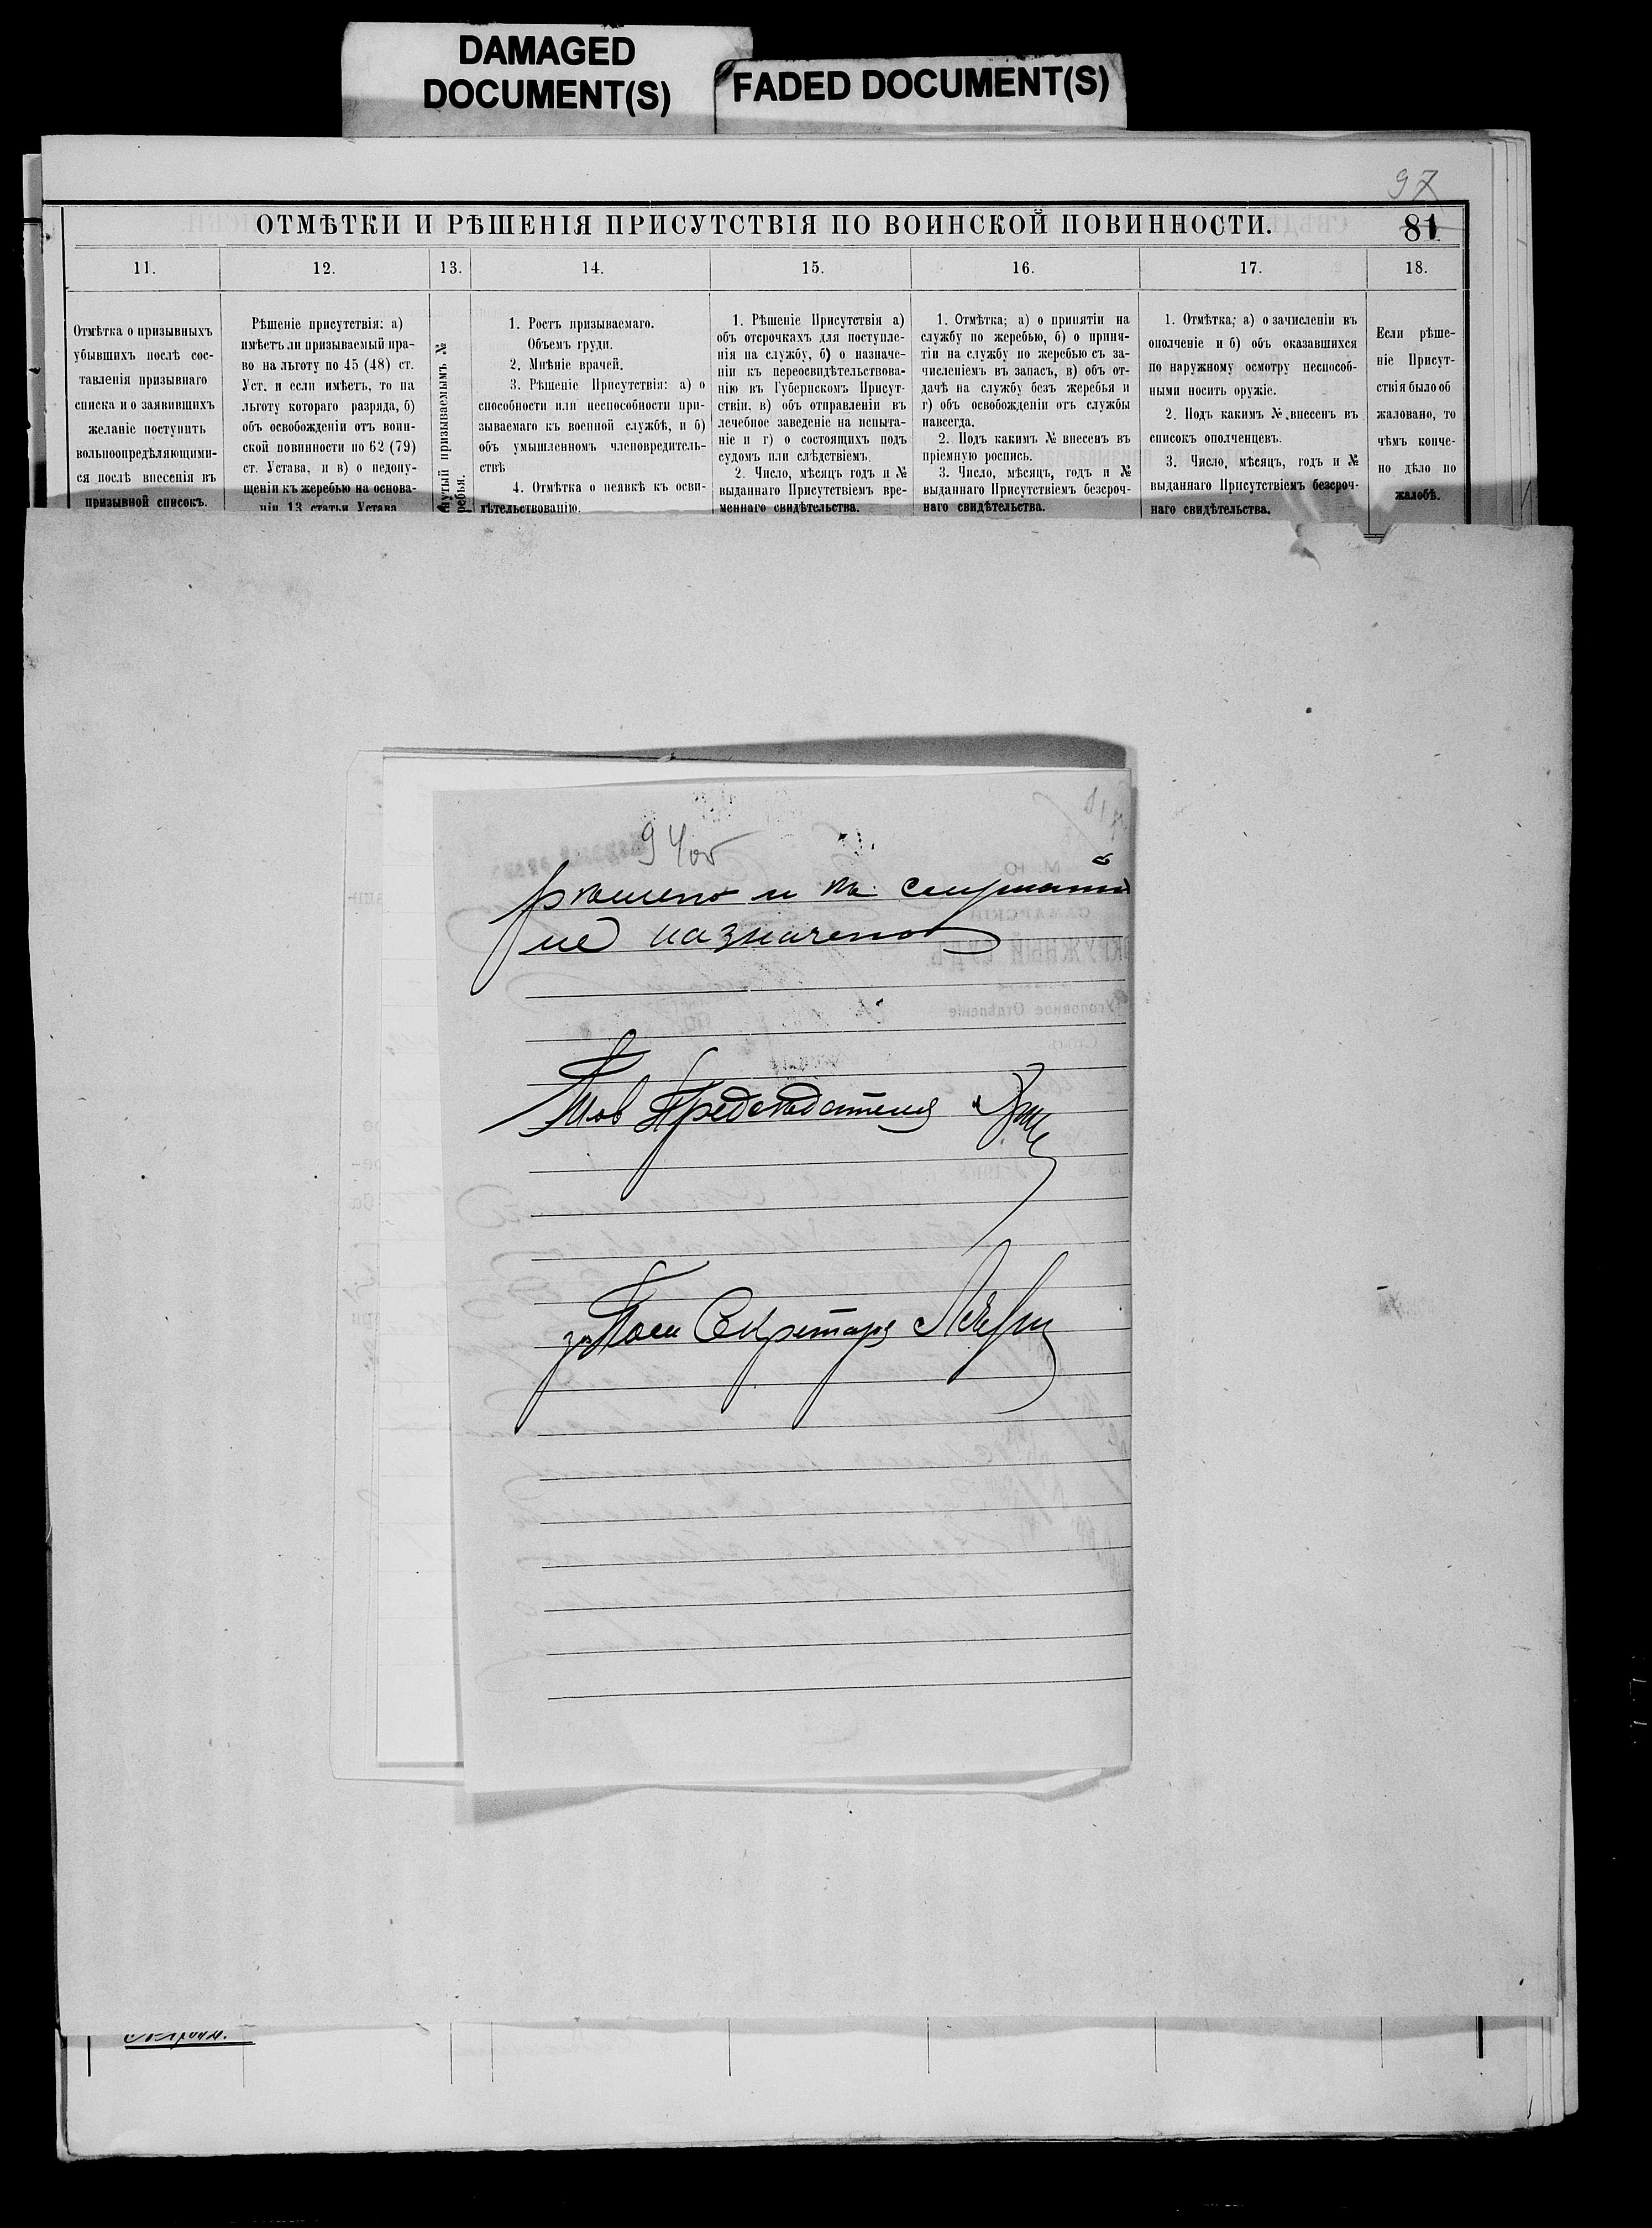 DAMAGED
DOCUMENT(S)
FADED DOCUMENT(S)
97
ОТМѢТКИ И РѢШЕНІЯ ПРИСУТСТВІЯ ПО ВОИНСКОЙ ПОВИННОСТИ.
81
11.
12.
13.
14.
15.
16.
17.
18.
Отмѣтка о призывныхъ
убывшихъ послѣ сос-
тавленія призывнаго
списка и о заявившихъ
желаніе поступить
вольноопредѣляющими-
ся послѣ внесенія въ
призывной списокъ.
Рѣшеніе присутствія: а)
имѣетъ ли призываемый пра-
во на льготу по 45 (48) ст.
Уст. и если имѣетъ, то на
льготу котораго разряда, б)
объ освобожденіи отъ воин-
ской повинности по 62 (79)
ст. Устава, и в) о недопу-
щеніи къ жеребью на основа-
ніи 13 статьи Устава
нутый призываемымъ №
ребья.
1. Ростъ призываемаго.
Объемъ груди.
2. Мнѣніе врачей.
3. Рѣшеніе Присутствія: а) о
способности или неспособности при-
зываемаго къ военной службѣ, и б)
объ умышленномъ членовредитель-
ствѣ
4. Отмѣтка о неявкѣ къ осви-
дѣтельствованію.
1. Рѣшеніе Присутствія а)
объ отсрочкахъ для поступле-
нія на службу, б) о назначе-
ніи къ переосвидѣтельствова-
нію въ Губернскомъ Присут-
ствіи, в) объ отправленіи въ
лечебное заведеніе на испыта-
ніе и г) о состоящихъ подъ
судомъ или слѣдствіемъ.
2. Число, мѣсяцъ годъ и №
выданнаго Присутствіемъ вре-
меннаго свидѣтельства.
1. Отмѣтка; а) о принятіи на
службу по жеребью, б) о приня-
тіи на службу по жеребью съ за-
численіемъ въ запасъ, в) объ от-
дачѣ на службу безъ жеребья и
г) объ освобожденіи отъ службы
навсегда.
2. Подъ какимъ № внесенъ въ
пріемную роспись.
3. Число, мѣсяцъ, годъ и №
выданнаго Присутствіемъ безсроч-
наго свидѣтельства.
1. Отмѣтка; а) о зачисленіи въ
ополченіе и б) объ оказавшихся
по наружному осмотру неспособ-
ными носить оружіе.
2. Подъ какимъ № внесенъ въ
списокъ ополченцевъ.
3. Число, мѣсяцъ, годъ и №
выданнаго Присутствіемъ безсроч-
наго свидѣтельства.
Если рѣше-
ніе Присут-
ствія было об
жаловано, то
чѣмъ конче-
но дѣло по
жалобѣ.
94об
рѣшено и къ слушанію
не назначено
Тов Предсѣдателя
за Пом Секретаря